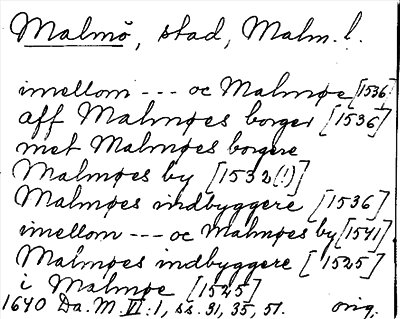 Malmö, stad, Malm. l.
imellom --- oc Malmøe [1536]
aff Malmøes borger [1536]
met Malmøes borgere
Malmøes by [1532(!)]
Malmøes indbyggere [1536]
imellom --- oc Malmøes by [1541]
Malmøes indbyggere [1525]
i Malmøe [1525]
1640 Da. M. II:1, ss. 31, 35, 51. orig.